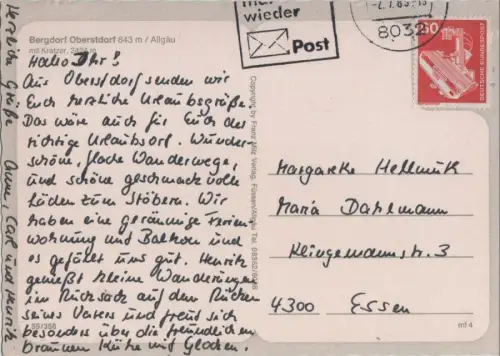 Bergdorf Oberstdorf 843 m / Allgäu
mit Kratzer, 2424 m
Hallo Ihr!
Aus Oberstdorf senden wir
Euch herzliche Urlaubsgrüße.
Das wäre auch für Euch der
richtige Urlaubsort. Wunder-
schöne, flache Wanderwege,
und schöne geschmackvolle
Läden zum Stöbern. Wir
haben eine geräumige Ferien-
wohnung mit Balkon und
es gefällt uns gut. Henrik
genießt kleine Wanderungen
im Rucksack auf dem Rücken
seines Vaters und freut sich
besonders über die freundlichen
braunen Kühe mit Glocken.
Herzliche Grüße
Anne, Carl und Henrik
Copyright by Franz Milz Verlag, Füssen/Allgäu Tel.
wieder
Post
8032
60
DEUTSCHE BUNDESPOST
Margarete Hellmuth
Maria Dahlmann
Klingemannstr. 3
4300 Essen
mf 4